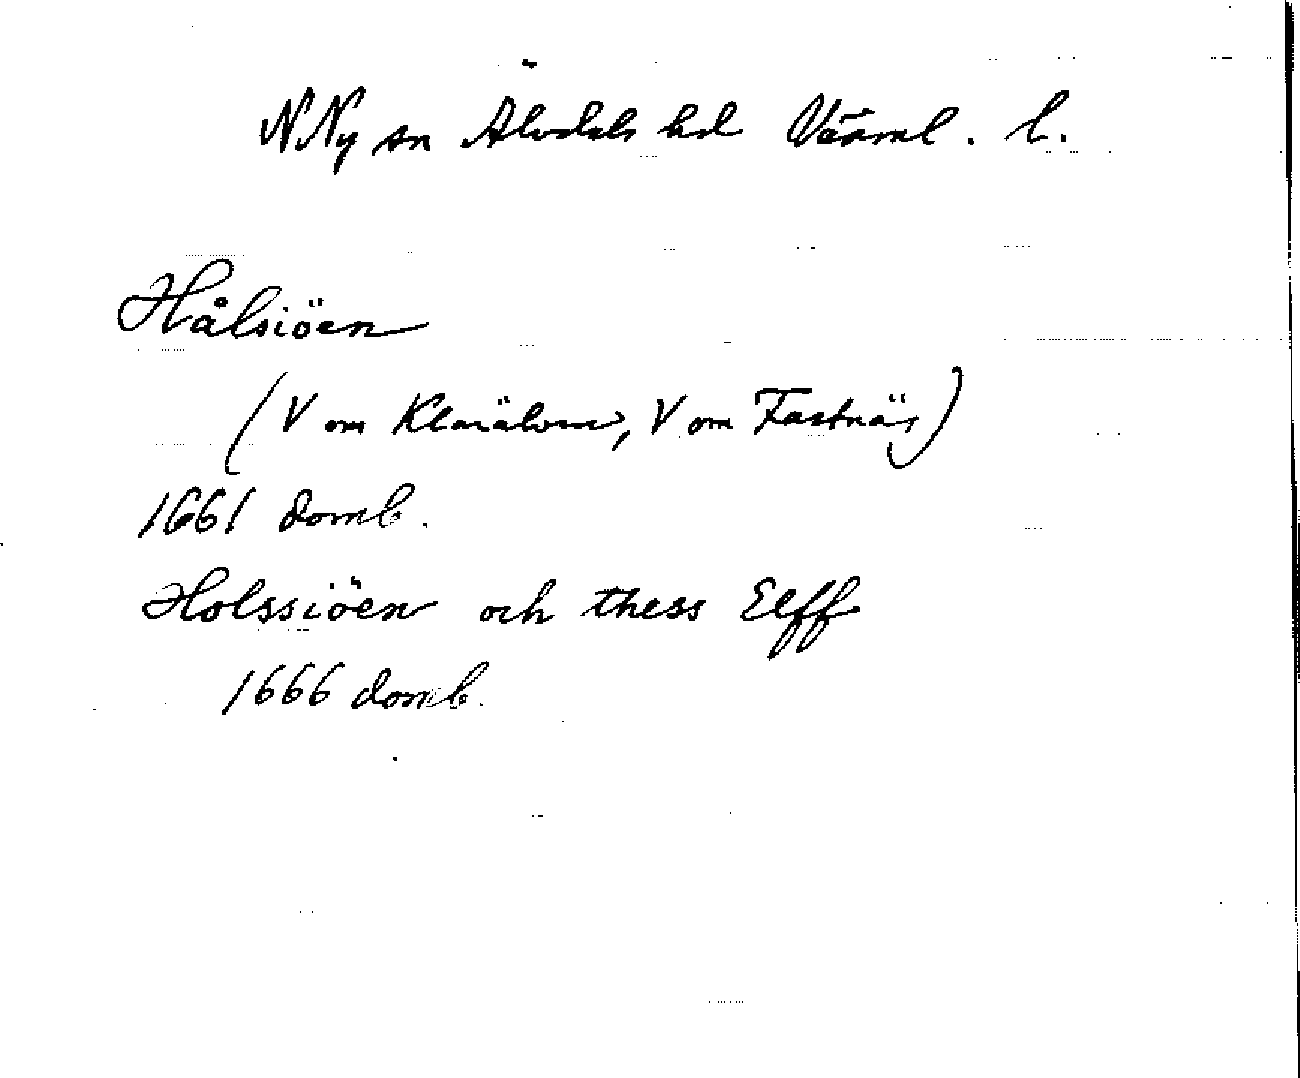 N Ny sn Älvdals hd Värml. l.
Hålsiöen
(V om Klarälven, V om Fastnäs)
1661 domb.
Holssiöen och thess Elff
1666 domb.